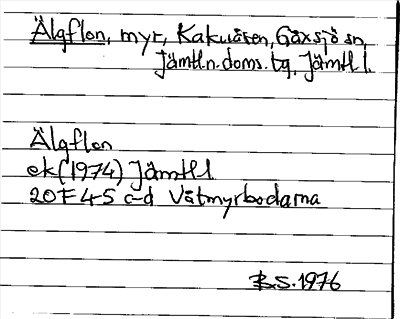 Älgflon, myr, Kakuåsen, Gåxsjö sn,
Jämtln. doms. tg, Jämtl l.
Älgflon
ek (1974) Jämtl l
20F 4-5 c-d Våtmyrbodarna
B.S. 1976